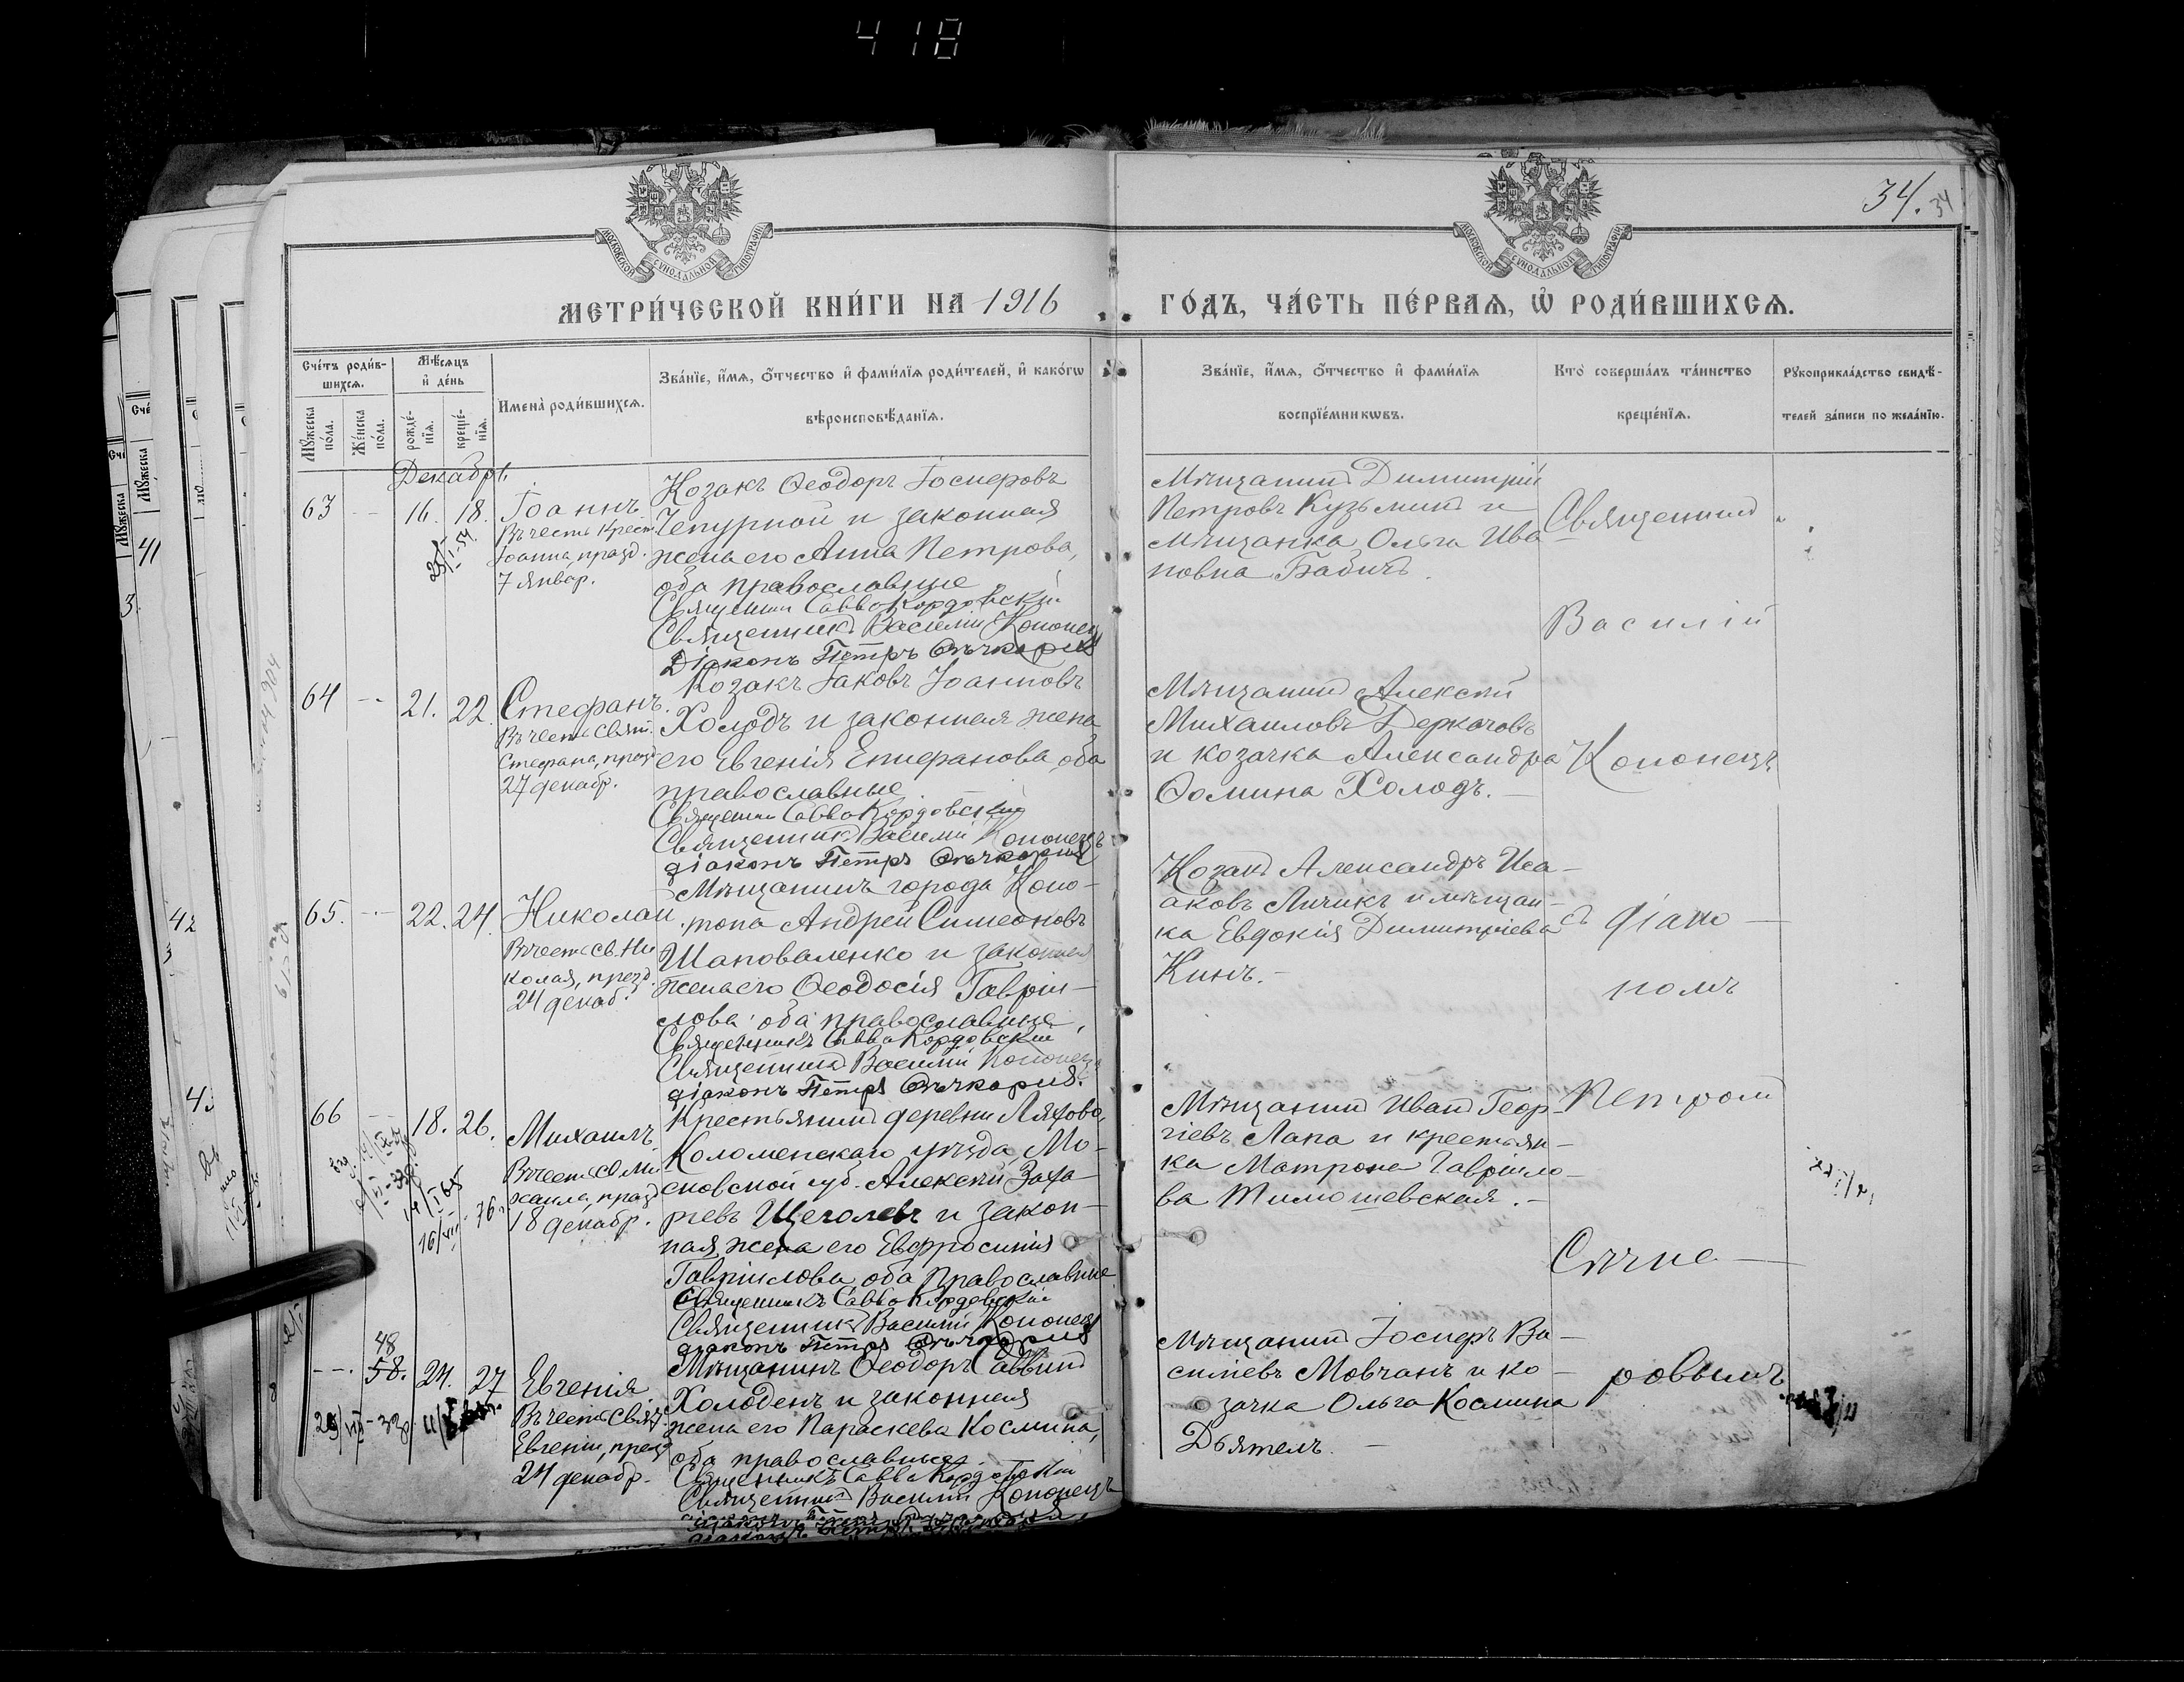 418
34. 34
МОСКОВСКОЙ СѴНОДАЛЬНОЙ ТИПОГРАФІИ
МОСКОВСКОЙ СѴНОДАЛЬНОЙ ТИПОГРАФІИ
МЕТРИ́ЧЕСКОЙ КНИ́ГИ НА 1916
ГО́ДЪ, ЧА́СТЬ ПЕ́РВАѦ, Ѡ҆ РОДИ́ВШИХСѦ.
Сче́тъ роди́в-
шихсѧ.
Мꙋ́жеска по́ла.
Же́нска по́ла.
Мѣ́сѧцъ и҆ де́нь
рожде́-нїѧ.
креще́-нїѧ.
Имена̀ роди́вшихсѧ.
Зва́нїе, и҆́мѧ, ѻ҆́тчество и҆ фами́лїѧ роди́телей, и҆ како́гѡ
вѣроисповѣ́данїѧ.
Зва́нїе, и҆́мѧ, ѻ҆́тчество и҆ фами́лїѧ
воспрїе́мникѡвъ.
Кто̀ соверша́лъ та́инство
креще́нїѧ.
Рꙋкоприкла́дство свидѣ́-
телей за́писи по жела́нїю.
Декабрь.
63 -- 16. 18. Іоаннъ.
Въ честь Крест.
Іоанна, празд.
7 январ.
Козакъ Ѳеодоръ Іосифовъ
Чепурной и законная
жена его Анна Петрова,
оба православные
Священник Савва Кордовскій
Священникъ Василій Кононецъ
Діаконъ Петръ
Мѣщанинъ Димитрій
Петровъ Кузьминъ и
мѣщанка Ольга Ива
новна Бабичъ.
64 -- 21. 22. Стефанъ.
Въ честь Свят.
Стефана, празд
27 декабр.
Козакъ Іаковъ Іоанновъ
Холодъ и законная жена
его Евгенія Епифанова, оба
православные
Священник Савва Кордовскій
Священникъ Василій Кононецъ
діаконъ Петръ
Мѣщанинъ Алексѣй
Михаиловъ Деркачовъ
и козачка Александра
Ѳомина Холодъ. —
65. -- 22. 24. Николай
Въ честь Св. Ни
колая, празд.
24 декаб.
Мѣщанинъ города Коно-
топа Андрей Симеоновъ
Шаповаленко и законная
жена его Ѳеодосія Гаврiи-
лова, оба православные,
Священникъ Савва Кордовскій
Священникъ Василій Кононецъ
діаконъ Петръ
Козакъ Александръ Иса-
аковъ Личикъ и мѣщан-
ка Евдокія Димитріева
Кинъ. -
66 -- 18. 26. Михаилъ
Въ честь Св. Ми
хаила, празд
18 декабр.
Крестьянинъ деревни Ляхово,
Коломенскаго уѣзда, Мо-
сковской губ. Алексѣй Заха-
ріевъ Щеголевъ и закон-
ная жена его Евфросинія
Гавріилова, оба православные
Священникъ Савва Кордовскій
Священникъ Василій Кононецъ
діаконъ Петръ
Мѣщанинъ Иванъ Геор-
гіевъ Лапа и крестьян-
ка Матрона Гавріило-
ва Тимошевская. -
48
--. 58. 24. 27 Евгенія
Въ честь Свят.
Евгеніи, празд
24 декабр.
Мѣщанинъ Ѳеодоръ Саввинъ
Холоденъ и законная
жена его Параскева Космина,
оба православные.
Священникъ Савва Кордовскій
Священникъ Василій Кононецъ
Мѣщанинъ Іосифъ Ва-
силіевъ Мовчанъ и ко-
зачка Ольга Космина
Дѣятелъ. —
Священникъ
Василій
Кононецъ
съ діако-
номъ
Петромъ
Сѣчка-
ровымъ